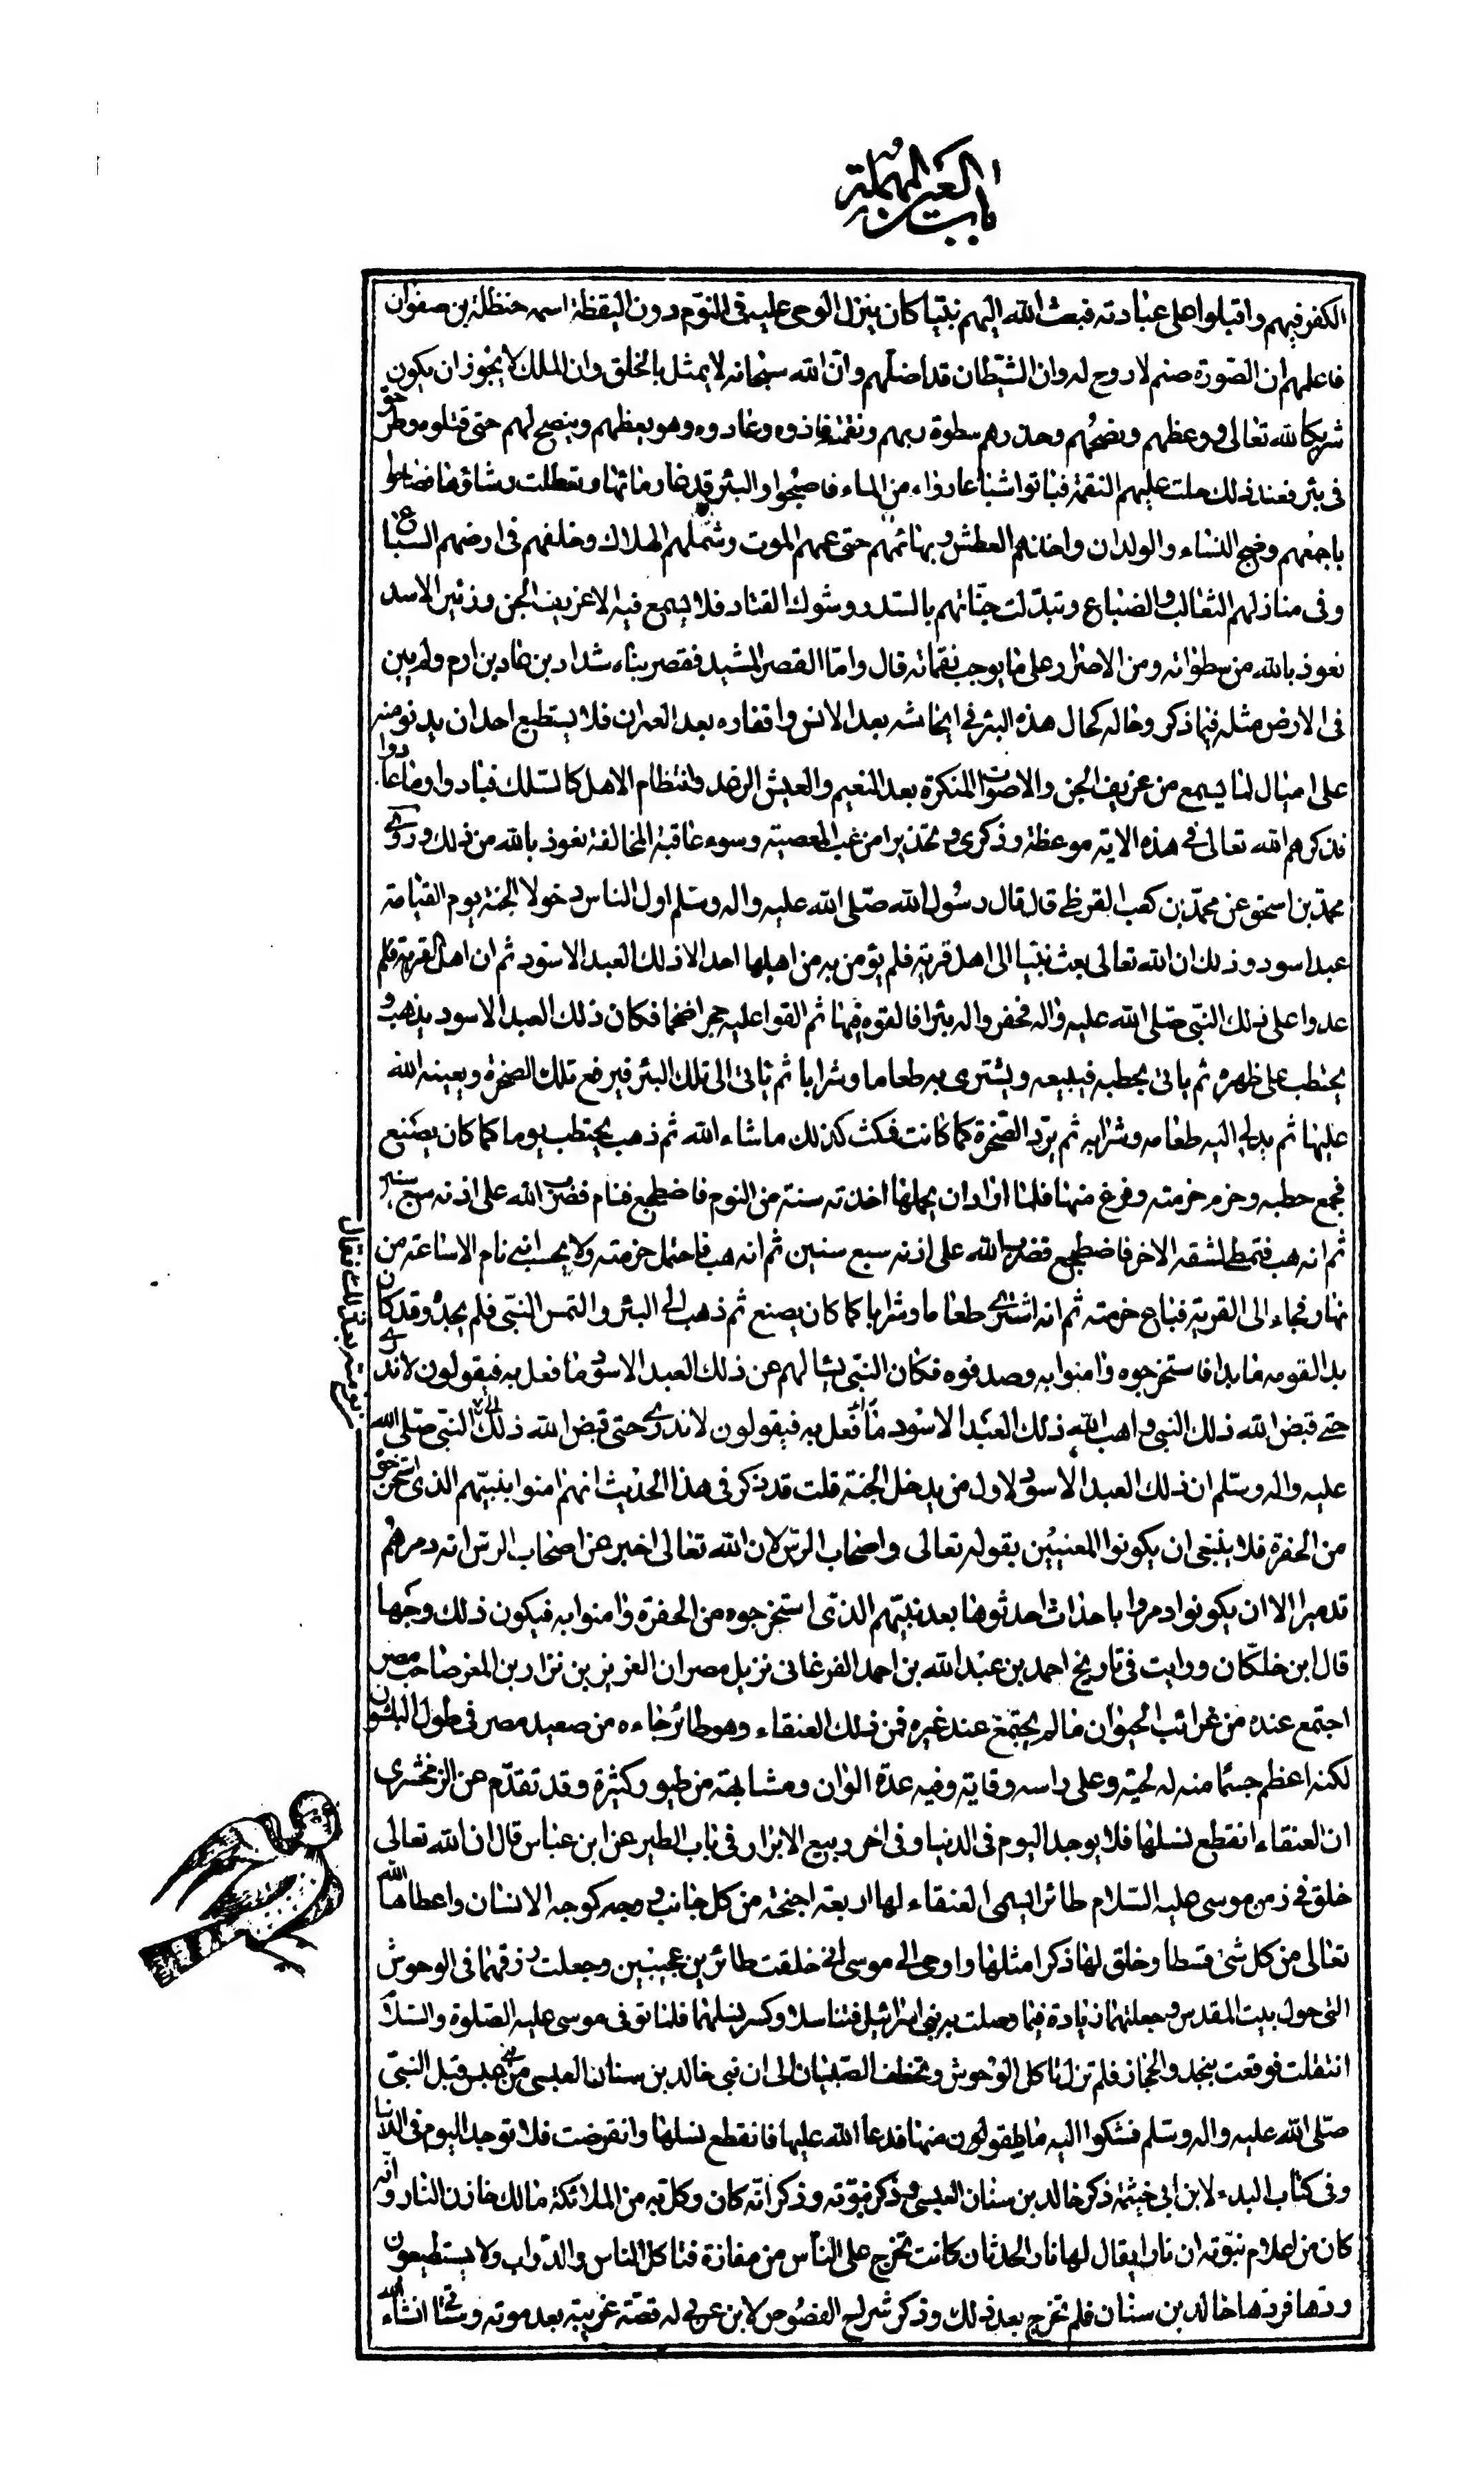 باب العين المهملة
الكفر فيهم واقبلوا على عبادته فبعث الله اليهم نبيا كان ينزل الوحى عليه فى النوم دون اليقظة اسمه حنظلة بن صفوان
فاعلمهم ان الصورة صنم لا روح له وان الشيطان قد اضلهم وان الله سبحانه لا يمثل بالخلق وان الملك لا يجوز ان يكون
شريكا لله تعالى ووعظهم ونصحهم وحذرهم سطوة ربهم ونقمته فاذوه وعادوه وهو يعظهم وينصح لهم حتى قتلوه وطرحوه
فى بئر فعند ذلك حلت عليهم النقمة فباتوا شباعا رواء من الماء فاصبحوا والبئر قد غار ماؤها وتعطلت رشاؤها فصاحوا
باجمعهم وضج النساء والولدان واخذهم العطش وبهائمهم حتى عمهم الموت وشملهم الهلاك وخلفهم فى ارضهم السباع
وفى منازلهم الثعالب والضباع وتبدلت جناتهم بالسدر وشوك القتاد فلا يسمع فيه الا عزيف الجن وزئير الاسد
نعوذ بالله من سطواته ومن الاصرار على ما يوجب نقماته قال واما القصر المشيد فقصر بناه شداد بن عاد بن ارم ولم يبن
فى الارض مثله فيما ذكر وحاله كحال هذه البئر فى ايحاشه بعد الانس واقفاره بعد العمران فلا يستطيع احد ان يدنو منه
على اميال لما يسمع من عزيف الجن والاصوات المنكرة بعد النعيم والعيش الرغد وانتظام الاهل كالسلك فبادوا وما عادوا
فذكرهم الله تعالى فى هذه الاية موعظة وذكرى وتحذيرا من غب المعصية وسوء عاقبة المخالفة نعوذ بالله من ذلك وروى
محمد بن اسحق عن محمد بن كعب القرظى قال قال رسول الله صلى الله عليه واله وسلم اول الناس دخولا الجنة يوم القيامة
عبد اسود وذلك ان الله تعالى بعث نبيا الى اهل قرية فلم يؤمن به من اهلها احد الا ذلك العبد الاسود ثم ان اهل القرية فلم
عدوا على ذلك النبى صلى الله عليه واله فحفروا له بئرا فالقوه فيها ثم القوا عليه حجرا ضخما فكان ذلك العبد الاسود يذهب و
يحتطب على ظهره ثم ياتى بحطبه فيبيعه ويشترى به طعاما وشرابا ثم ياتى الى تلك البئر فيرفع تلك الصخرة ويعينه الله
عليها ثم يدلى اليه طعامه وشرابه ثم يرد الصخرة كما كانت فمكث كذلك ما شاء الله ثم ذهب يحتطب يوما كما كان يصنع
فجمع حطبه وحزم حزمته وفرغ منها فلما اراد ان يحملها اخذته سنة من النوم فاضطجع فنام فضرب الله على اذنه سبع سنين
ثم انه هب فتمطى لشقه الاخر فاضطجع فضرب الله على اذنه سبع سنين ثم انه هب فاحتمل حزمته ولا يحسب انه نام الا ساعة من
نهار فجاء الى القرية فباع حزمته ثم انه اشترى طعاما وشرابا كما كان يصنع ثم ذهب الى البئر والتمس النبى فلم يجده وقد كان
بدا لقومه ما بدا فاستخرجوه وامنوا به وصدقوه فكان النبى يسالهم عن ذلك العبد الاسود ما فعل به فيقولون لا ندرى
حتى قبض الله ذلك النبى واهب الله ذلك العبد الاسود ما فعل به فيقولون لا ندرى حتى قبض الله ذلك النبى صلى الله
عليه واله وسلم ان ذلك العبد الاسود لاول من يدخل الجنة قلت قد ذكر فى هذا الحديث انهم امنوا بنبيهم الذى استخرجوه
من الحفرة فلا ينبغى ان يكونوا المعنيين بقوله تعالى واصحاب الرس لان الله تعالى اخبر عن اصحاب الرس انه دمرهم
تدميرا الا ان يكونوا دمروا باحداث احدثوها بعد نبيهم الذى استخرجوه من الحفرة وامنوا به فيكون ذلك وجها
قال ابن خلكان ورايت فى تاريخ احمد بن عبد الله بن احمد الفرغانى نزيل مصر ان العزيز بن نزار بن المعز صاحب مصر
اجتمع عنده من غرائب الحيوان ما لم يجتمع عند غيره فمن ذلك العنقاء وهو طائر جاءه من صعيد مصر فى طول البلشون
لكنه اعظم جسما منه له لحية وعلى راسه وقاية وفيه عدة الوان ومشابهة من طيور كثيرة وقد تقدم عن الزمخشرى
ان العنقاء انقطع نسلها فلا يوجد اليوم فى الدنيا وفى اخر ربيع الابرار فى باب الطير عن ابن عباس قال ان الله تعالى
خلق فى زمن موسى عليه السلام طائرا يسمى العنقاء لها اربعة اجنحة من كل جانب ووجه كوجه الانسان واعطاها الله
تعالى من كل شئ قسطا وخلق لها ذكرا مثلها واوحى الى موسى انى خلقت طائرين عجيبين وجعلت رزقهما فى الوحوش
التى حول بيت المقدس وجعلتهما زيادة فيما وصلت به بنى اسرائيل فتناسلا وكسر نسلهما فلما توفى موسى عليه الصلوة والسلام
انتقلت فوقعت بنجد والحجاز فلم تزل تاكل الوحوش وتخطف الصبيان الى ان نبى خالد بن سنان العبسى من بنى عبس قبل النبى
صلى الله عليه واله وسلم فشكوا اليه ما يلقون منها فدعا الله عليها فانقطع نسلها وانقرضت فلا توجد اليوم فى الدنيا
وفى كتاب البدء لابن ابى خيثمة ذكر خالد بن سنان العبسى وذكر نبوته وذكر انه كان وكل به من الملائكة مالك خازن النار وانه
كان من اعلام نبوته ان نارا يقال لها نار الحدثان كانت تخرج على الناس من مفازة فتاكل الناس والدواب ولا يستطيعون
ردها فردها خالد بن سنان فلم تخرج بعد ذلك وذكر شراح الفصوص لابن عربى له قصة غريبة بعد موته وستاتى انشاء الله